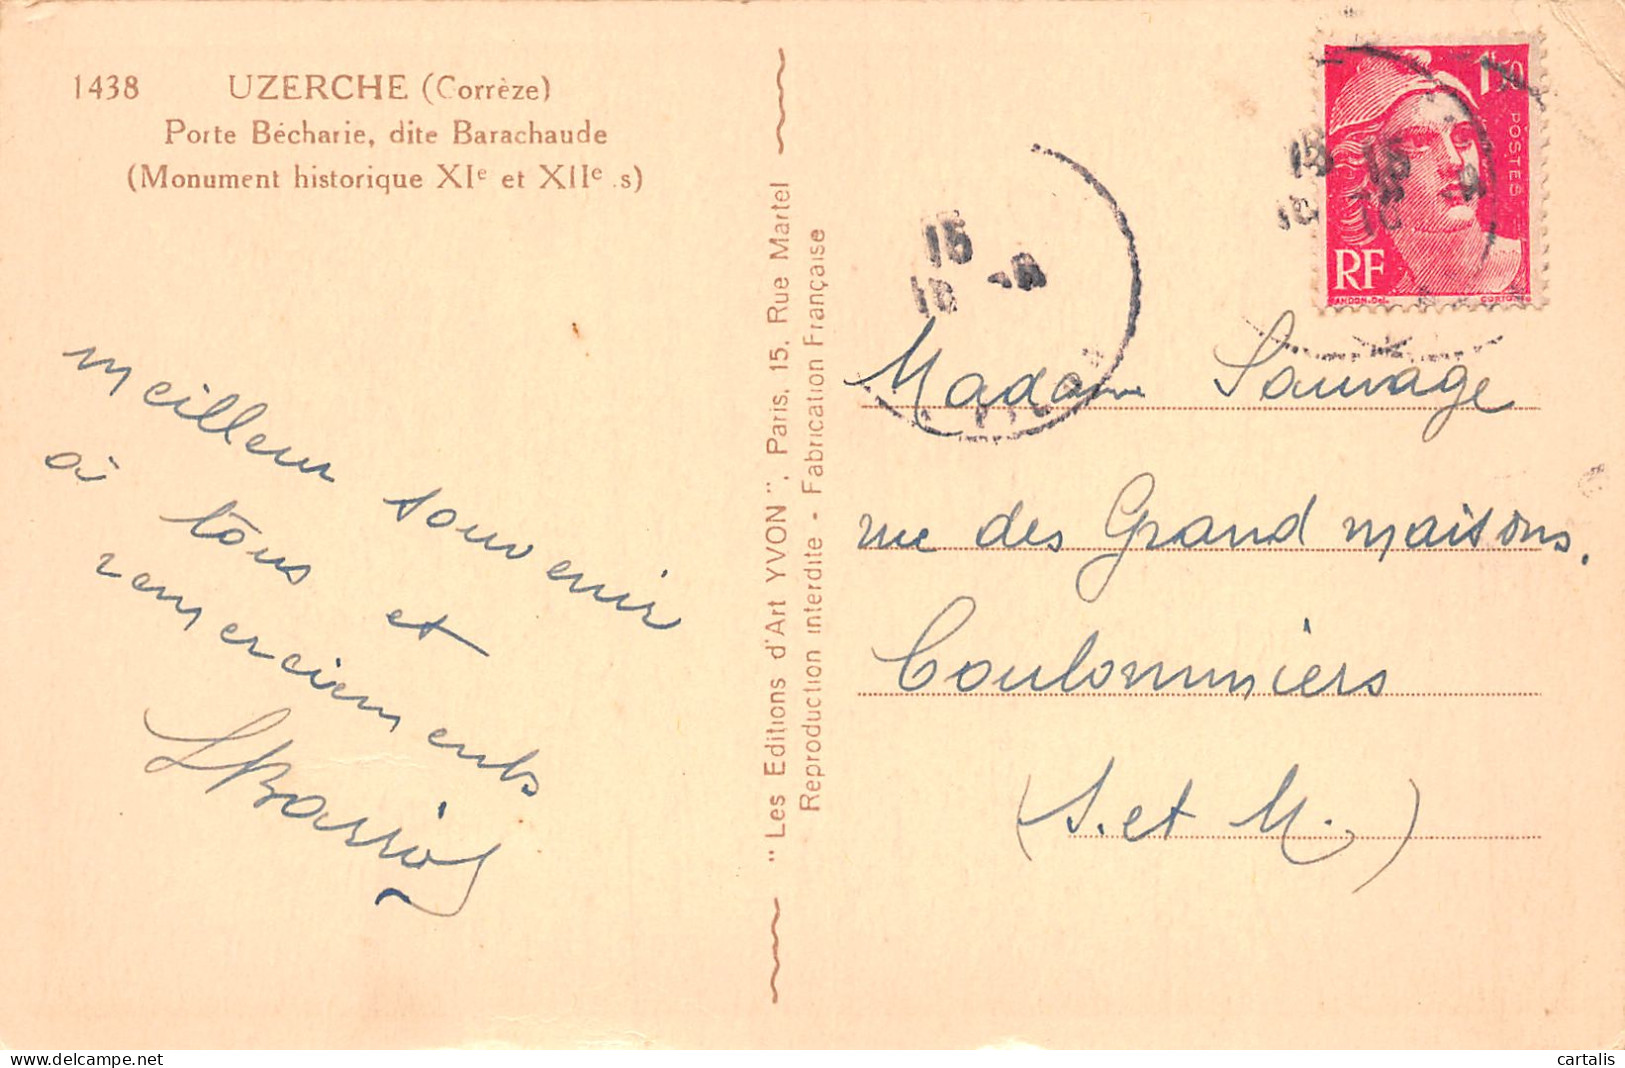 1438 UZERCHE (Corrèze)
Porte Bécharie, dite Barachaude
(Monument historique XIe et XIIe s)
meilleur souvenir
à tous et
remerciements
"Les Editions d'Art YVON", Paris, 15, Rue Martel
Reproduction interdite - Fabrication Française
1F50
POSTES
RF
15
16 -8
15 15
16 16
Madame Sauvage
rue des Grand maisons.
Coulommiers
(S. et M.)
cartalis